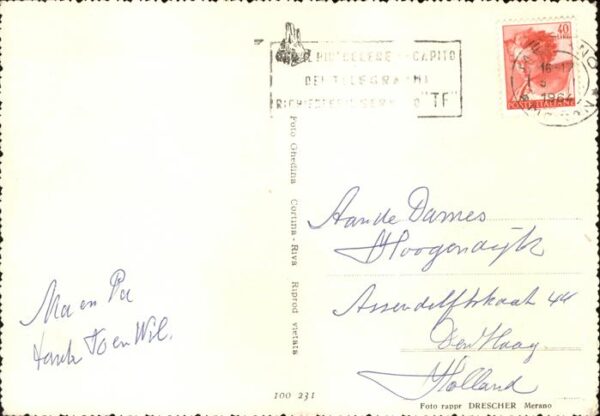 PIU' CELERE RECAPITO
DEI TELEGRAMMI
RICHIEDERE IL SERVIZIO "TF"
40
POSTE ITALIANE
16-17
1964
Foto Ghedina Cortina - Riva Riprod vietata
Aan de Dames
Hoogendijk
Assendelftstraat 44
Den Haag.
Holland
Ma en Pa
To en Wil.
100 231
Foto rappr DRESCHER Merano